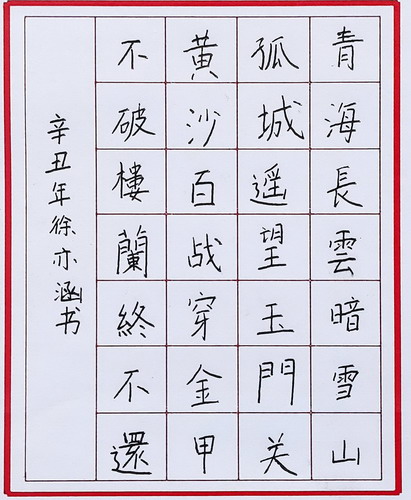 青海長雲暗雪山
孤城遥望玉門关
黄沙百战穿金甲
不破樓蘭終不還
辛丑年徐亦涵书